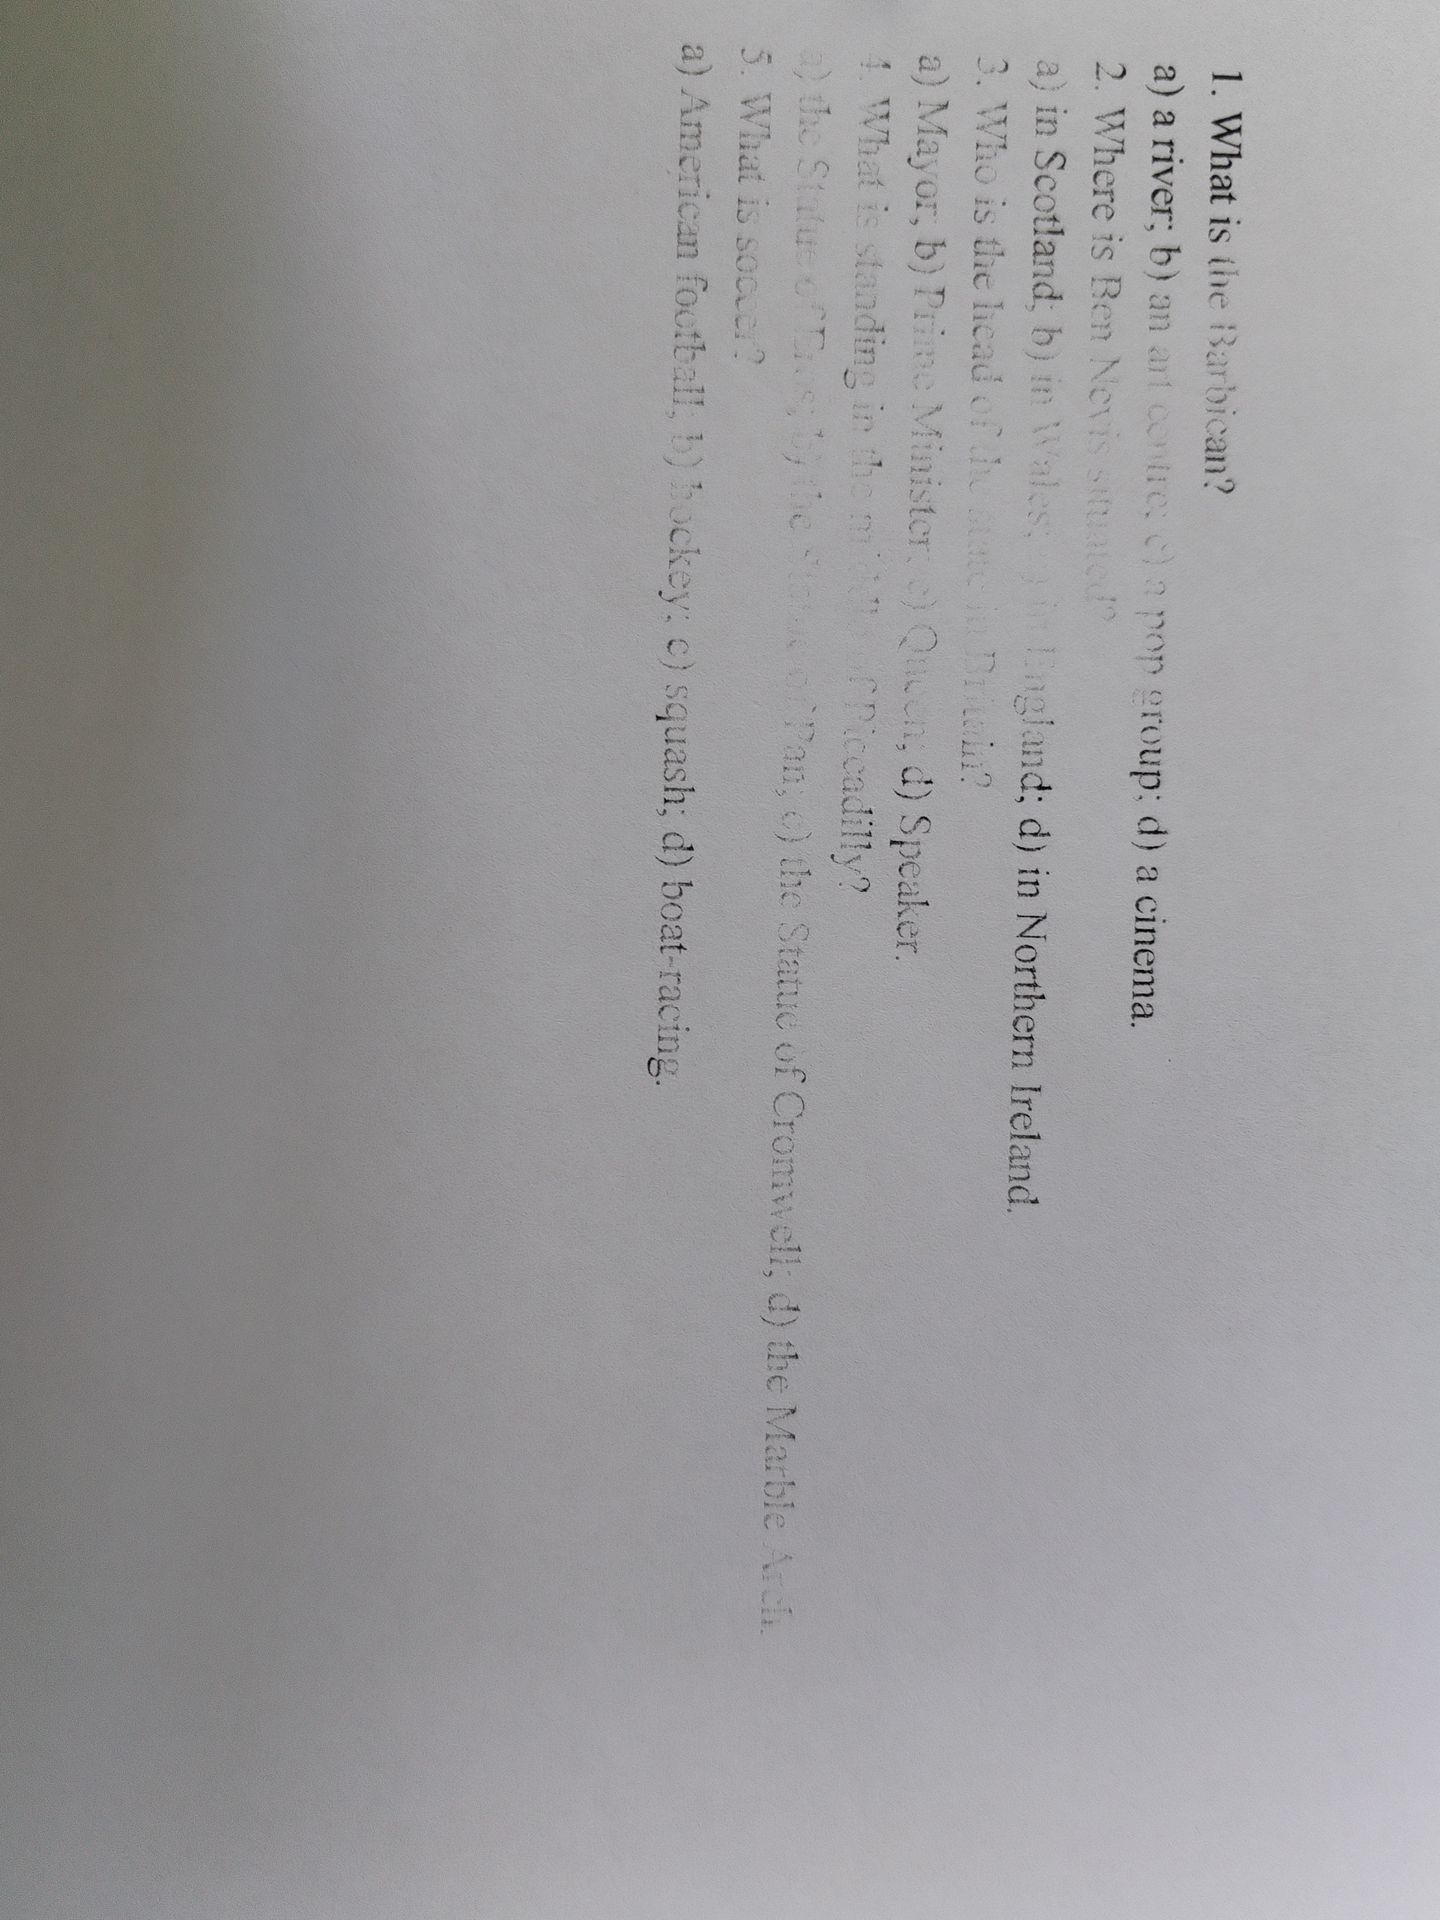 1. What is the Barbican?
a) a river; b) an art centre; c) a pop group; d) a cinema.
2. Where is Ben Nevis situated?
a) in Scotland; b) in Wales; c) in England; d) in Northern Ireland.
3. Who is the head of the state in Britain?
a) Mayor; b) Prime Minister; c) Queen; d) Speaker.
4. What is standing in the middle of Piccadilly?
a) the Statue of Eros; b) the Statue of Pan; c) the Statue of Cromwell; d) the Marble Arch.
5. What is soccer?
a) American football; b) hockey; c) squash; d) boat-racing.